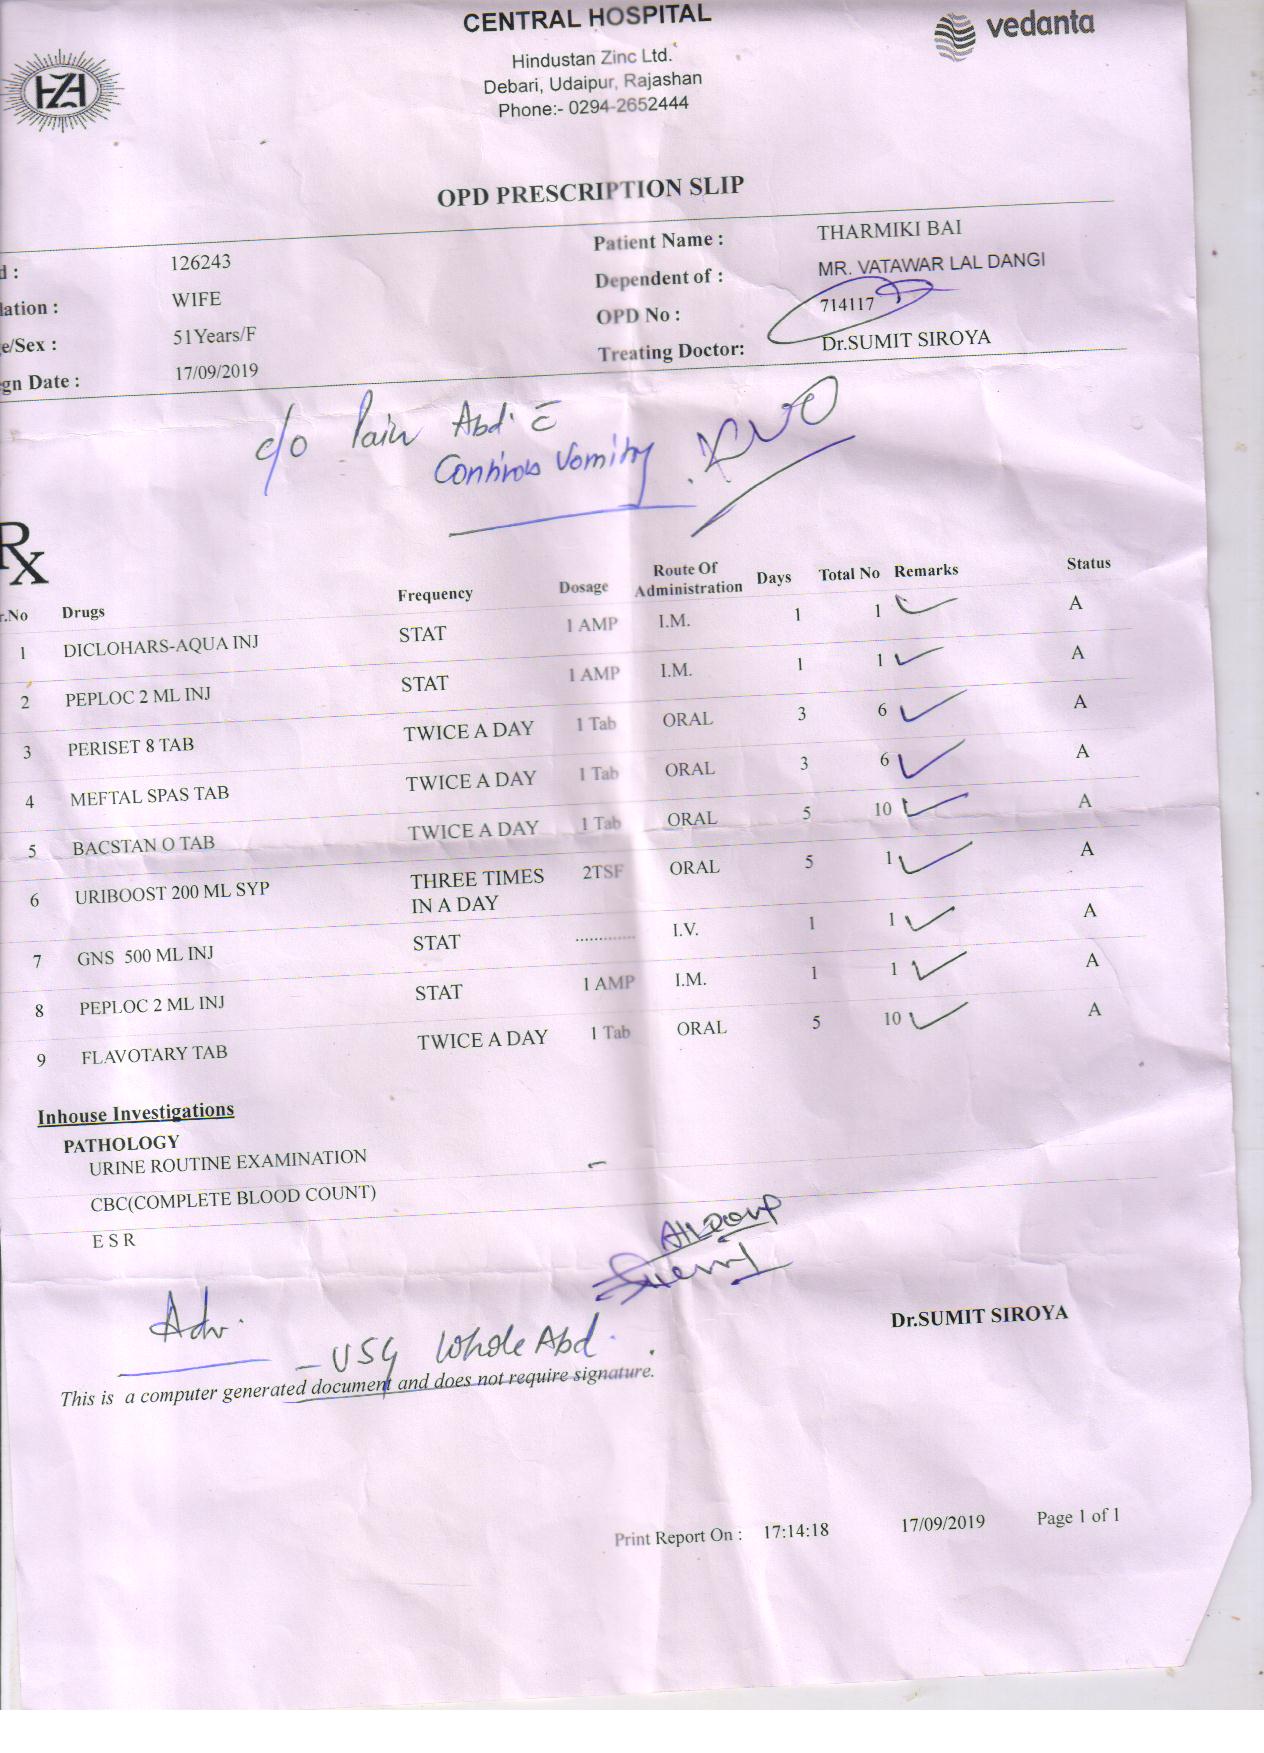 CENTRAL HOSPITAL
vedanta
HZL
Hindustan Zinc Ltd.
Debari, Udaipur, Rajashan
Phone:- 0294-2652444
OPD PRESCRIPTION SLIP
d : 126243 Patient Name : THARMIKI BAI
lation : WIFE Dependent of : MR. VATAWAR LAL DANGI
e/Sex : 51Years/F OPD No : 714117
gn Date : 17/09/2019 Treating Doctor: Dr.SUMIT SIROYA
c/o Pain Abd. c̄
Vomity
Rx
r.No Drugs Frequency Dosage Route Of Administration Days Total No Remarks Status
1 DICLOHARS-AQUA INJ STAT 1 AMP I.M. 1 1 A
2 PEPLOC 2 ML INJ STAT 1 AMP I.M. 1 1 A
3 PERISET 8 TAB TWICE A DAY 1 Tab ORAL 3 6 A
4 MEFTAL SPAS TAB TWICE A DAY 1 Tab ORAL 3 6 A
5 BACSTAN O TAB TWICE A DAY 1 Tab ORAL 5 10 A
6 URIBOOST 200 ML SYP THREE TIMES IN A DAY 2TSF ORAL 5 1 A
7 GNS 500 ML INJ STAT ............. I.V. 1 1 A
8 PEPLOC 2 ML INJ STAT 1 AMP I.M. 1 1 A
9 FLAVOTARY TAB TWICE A DAY 1 Tab ORAL 5 10 A
Inhouse Investigations
PATHOLOGY
URINE ROUTINE EXAMINATION
CBC(COMPLETE BLOOD COUNT)
E S R
Dr.SUMIT SIROYA
Adv.
- USG Whole Abd.
This is a computer generated document and does not require signature.
Print Report On : 17:14:18 17/09/2019 Page 1 of 1